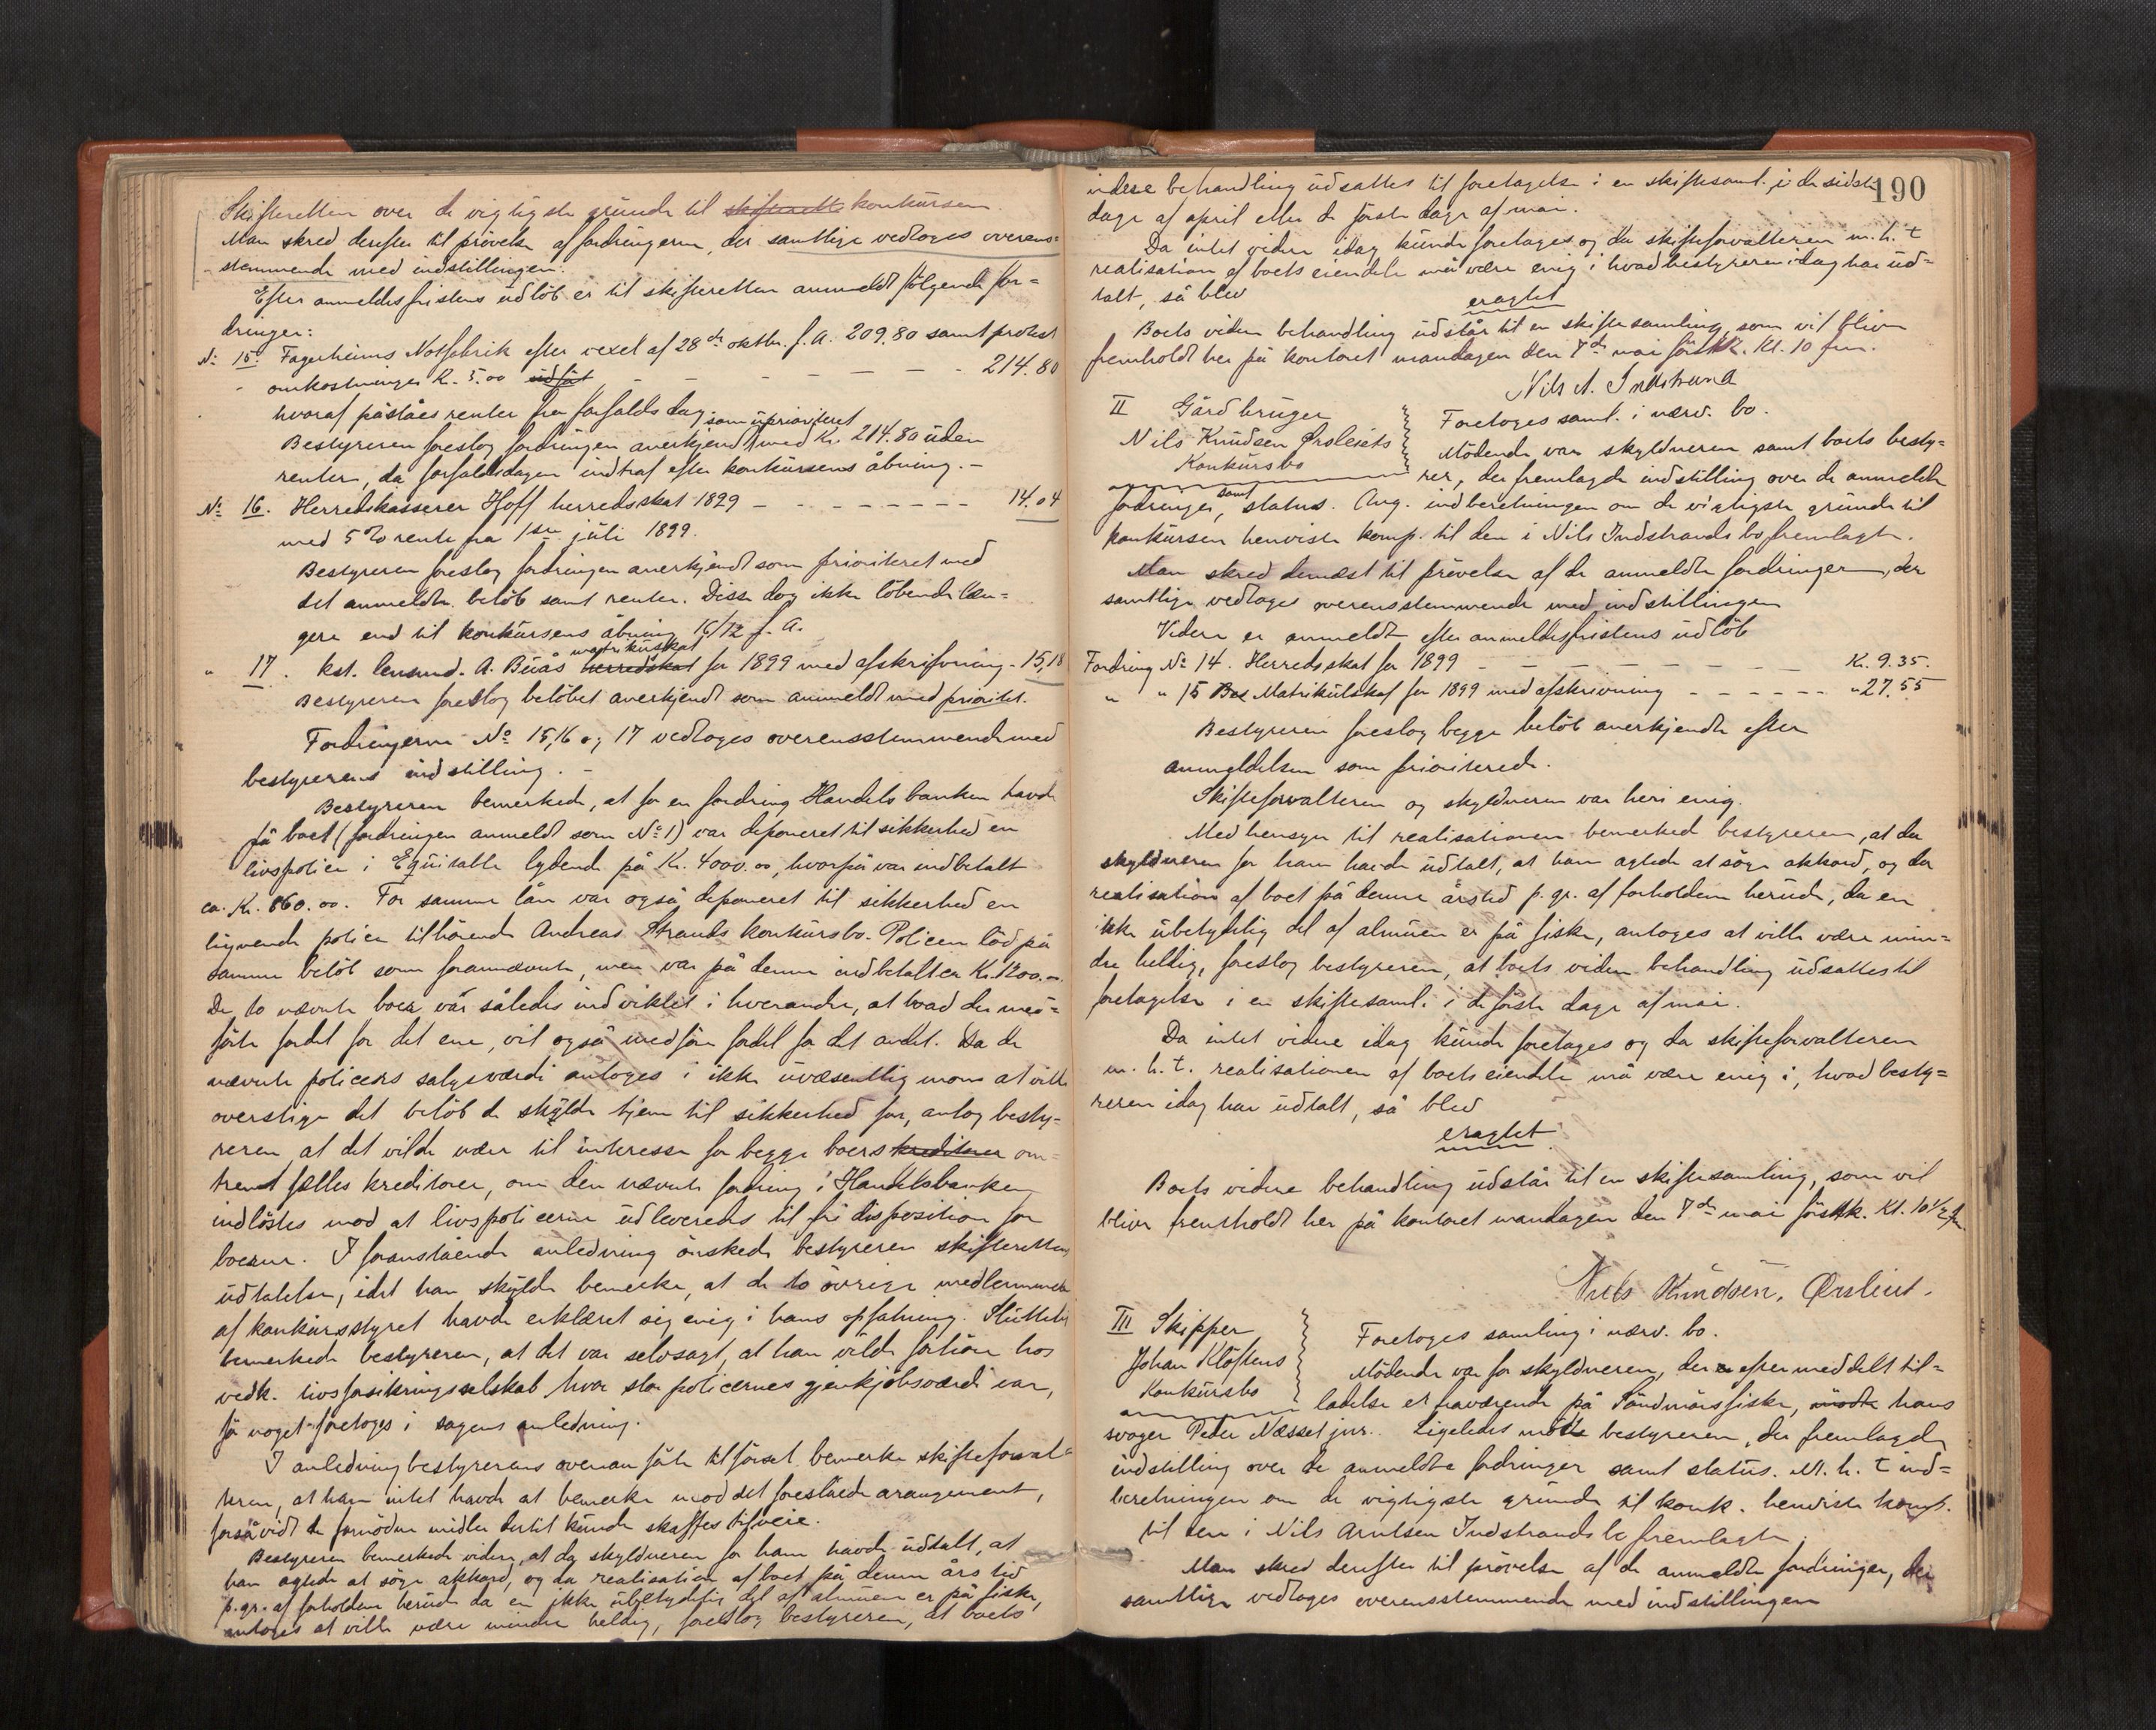 Skifteretten over de vigtigste grunde til skifterette konkursen.
Man skred derefter til prøvelse af fordringerne, der samtlige vedtoges overens=
stemmende med indstillingen.
Efter anmeldelsfristens udløb er til skifteretten anmeldt følgende for=
dringer:
No 15. Fagerheims Notfabrik efter vexel af 28de oktbr. f. A. 209.80 samt protest
omkostninger K. 5.00 - - - - - - 214.80
hvoraf påståes renter fra forfaldsdag
som uprioriteret
Bestyreren foreslog fordringen anerkjendt med Kr. 214.80 uden
renter, da forfaldsdagen indtraf efter konkursens åbning. -
No 16. Herredskasserer Hoff herredsskat 1899 - - - - - - - - 14.04
med 5 % rente fra 1ste juli 1899.
Bestyreren foreslog fordringen anerkjendt som prioriteret med
det anmeldte beløb samt renter. Disse dog ikke løbende læn=
gere end til konkursens åbning 16/12 f. A.
matrikulskat
" 17. kst. lensmd. A. Buås herredskat for 1899 med afskrifvning - 15,18
Bestyreren foreslog beløbet anerkjendt som anmeldt med prioritet.
Fordringerne No 15, 16 og 17 vedtoges overensstemmende med
bestyrerens indstilling. -
Bestyreren bemerkede, at for en fordring Handelsbanken havde
på boet (fordringen anmeldt som No 1) var deponeret til sikkerhed en
livspolice i Equitable lydende på Kr. 4000.00, hvorpå var indbetalt
ca. Kr. 860.00. For samme lån var også deponeret til sikkerhed en
lignende police tilhørende Andreas Strands konkursbo. Policen lød på
samme beløb som forannævnte, men var på denne indbetalt ca Kr. 1200.-
De to nævnte boer var således indviklet i hverandre, at hvad der med=
førte fordel for det ene, vil også medføre fordel for det andet. Da de
nævnte policers salgsværdi antoges i ikke uvæsentlig mon at ville
overstige det beløb de skulde tjene til sikkerhed for, antog besty=
reren, at det vilde være til interesse for begge boers kreditorer om=
trent fælles kreditorer, om den nævnte fordring i Handelsbanken
indløstes mod at livspolicerne udleveredes til fri disposition for
boerne. I foranstående anledning ønskede bestyreren skifterettens
udtalelse, idet han skulde bemerke, at de to øvrige medlemmer
af konkursstyret havde erklæret sig enig i hans opfatning. Slutteligt
bemerkede bestyreren, at det var selvsagt, at han vilde forhøre hos
vedk. livsforsikringsselskab hvor stor policernes gjenkjøbsværdi var,
før noget foretoges i sagens anledning.
I anledning bestyrerens ovenanførte tilførsel bemerkede skifteforval=
teren, at han intet havde at bemerke mod det foreslåede arangement,
forsåvidt de fornødne midler dertil kunde skaffes tilveie.
Bestyreren bemerkede videre, at da skyldneren for ham havde udtalt, at
han agtede at søge akkord, og da realisation af boet på denne års tid
p. gr. af forholdene herude da en ikke ubetydelig del af almuen er på fiske,
antoges at ville være mindre heldig, foreslog bestyreren, at boets
190
videre behandling udsattes til foretagelse i en skiftesaml. i de sidste
dage af april eller de første dage af mai.
Da intet videre idag kunde foretages og da skifteforvalteren m. h. t
realisation af boets eiendele må være enig i hvad bestyreren idag har ud=
talt, så blev
eragtet
Boets videre behandling udstår til en skiftesamling, som vil blive
fremholdt her på kontoret mandagen den 7de mai førstk. Kl. 10 fm.
Nils A. Indstrand
II Gårdbruger
Nils Knudsen Ørsleists
Konkursbo
Foretoges saml. i nærv. bo.
Mødende var skyldneren samt boets besty=
rer, der fremlagde indstilling over de anmeldte
samt
fordringer, status. Ang. indberetningen om de vigtigste grunde til
konkursen henviste komp. til den i Nils Indstrands bo fremlagte.
Man skred dernæst til prøvelse af de anmeldte fordringer, der
samtlige vedtoges overensstemmende med indstillingen
Videre er anmeldt efter anmeldelsfristens udløb
Fordring No 14. Herredsskat for 1899 - - - - - - - - Kr. 9.35.
" " 15 Bes Matrikulskat for 1899 med afskrivning - - - - - - " 27.55
Bestyreren foreslog begge beløb anerkjendte efter
anmeldelsen som prioriterede.
Skifteforvalteren og skyldneren var heri enig.
Med hensyn til realisationen bemerkede bestyreren, at da
skyldneren for ham havde udtalt, at han agtede at søge akkord, og da
realisation af boet på denne årstid p. gr. af forholdene herude, da en
ikke ubetydelig del af almuen er på fiske, antoges at ville være min=
dre heldig, foreslog bestyreren, at boets videre behandling udsattes til
foretagelse i en skiftesaml. i de første dage af mai.
Da intet videre idag kunde foretages og da skifteforvalteren
m. h. t. realisationen af boets eiendele må være enig i, hvad besty=
reren idag har udtalt, så blev
eragtet
Boets videre behandling udstår til en skiftesamling, som vil
blive fremholdt her på kontoret mandagen den 7de mai førstk. Kl. 10½ fm
Nils Knudsen, Ørsleist.
III Skipper
Johan Kløftens
Konkursbo
Foretoges samling i nærv. bo.
Mødende var for skyldneren, der efter meddelt til=
ladelse er fraværende på Søndmørsfiske, mødte hans
svoger Peder Næsset jnr. Ligeledes mødte bestyreren, der fremlagde
indstilling over de anmeldte fordringer samt status. M. h. t ind=
beretningen om de vigtigste grunde til konk. henviste komp.
til den i Nils Arntsen Indstrands bo fremlagte.
Man skred derefter til prøvelse af de anmeldte fordringer, der
samtlige vedtoges overensstemmende med indstillingen